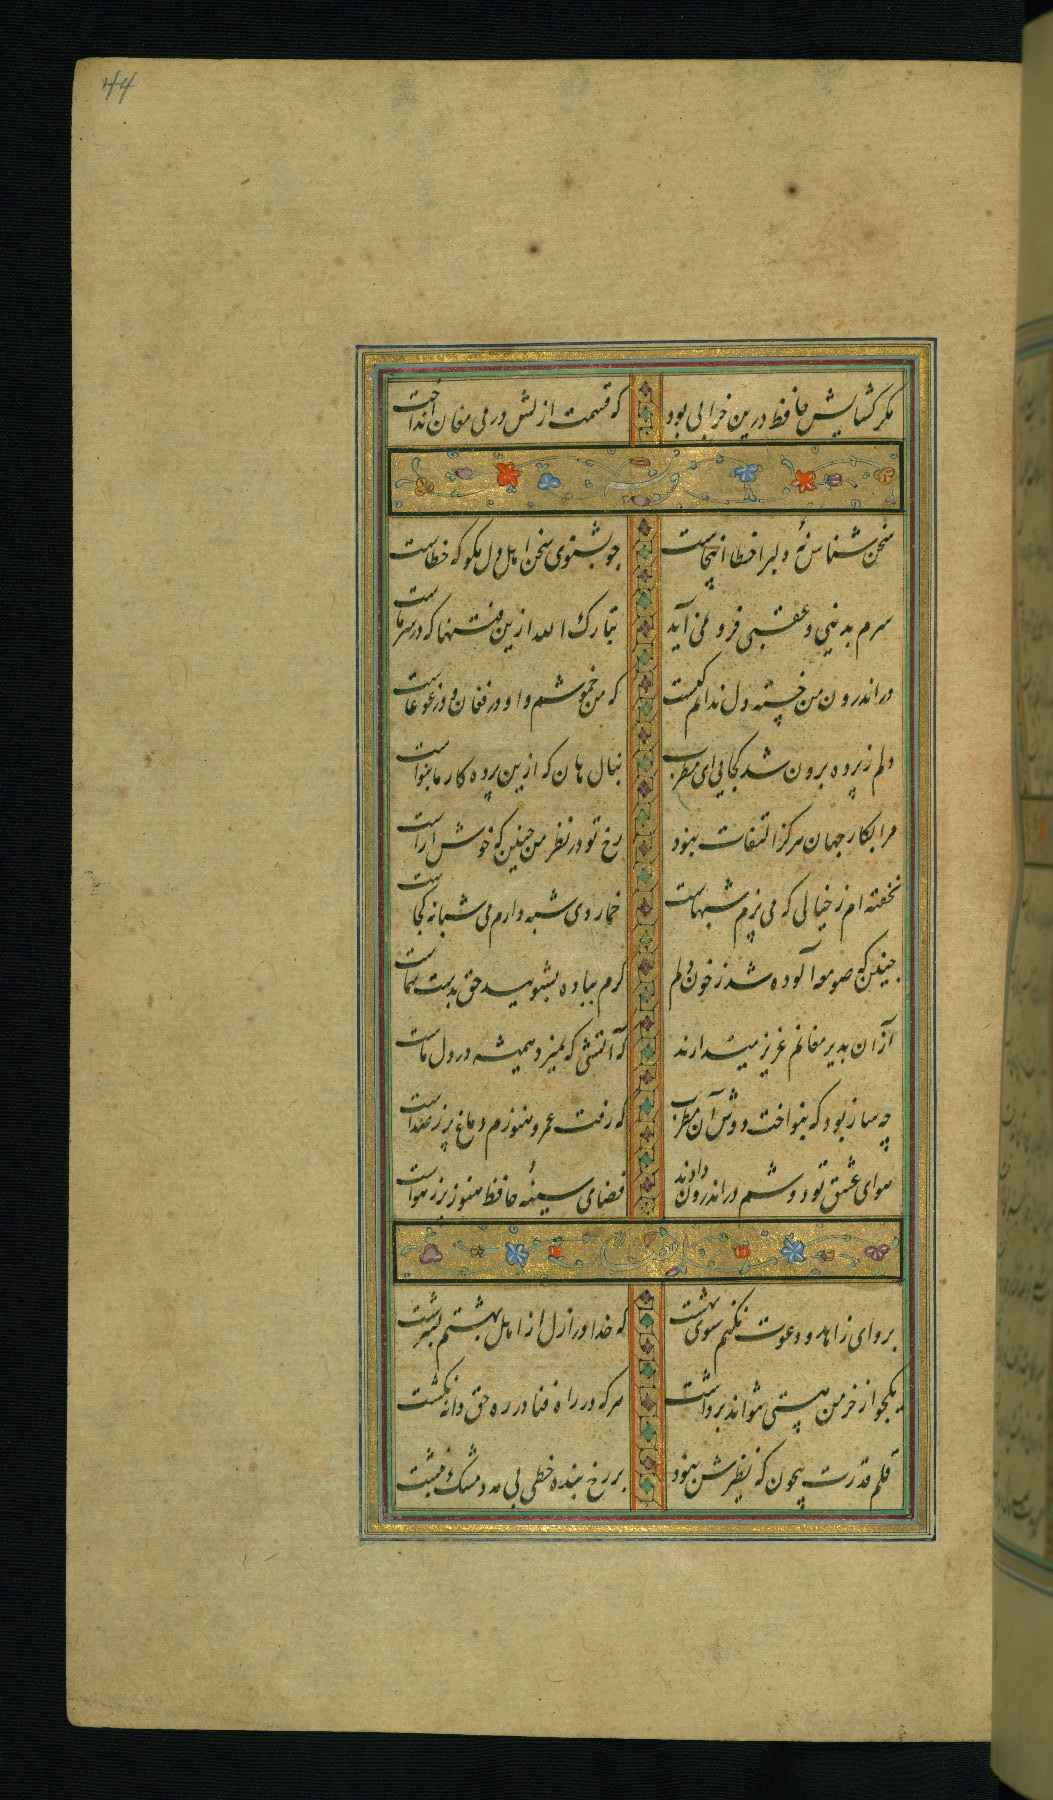 44
مکر کشایش حافظ درین خرابی بود که قسمت ازلش در می مغان انداخت
سخن شناس نهٔ دلبرا خطا اینجاست چو بشنوی سخن اهل دل مکو که خطاست
سرم بدنیی و عقبی فرو نمی آید تبارک الله ازین فتنها که در سر ماست
در اندرون من خسته دل ندانم کیست که من خموشم و او در فغان و در غوغاست
دلم ز پرده برون شد کجایی ای مطرب بنال هان که ازین پرده کار ما بنواست
مرا بکار جهان هرکز التفات نبود رخ تو در نظر من چنین که خوش آراست
نخفته ام ز خیالی که می پزم شبهاست خمار دی شبه دارم می شبانه کجاست
چنین که صومعه آلوده شد ز خون دلم کرم بباده بشویید حق بدست شماست
از آن بدیر مغانم عزیز میدارند که آتشی که نمیرد همیشه در دل ماست
چه ساز بود که بنواخت دوش آن مطرب که رفت عمر و هنوزم دماغ پر ز صداست
هوای عشق تو دوشم در اندرون دادند فضای سینهٔ حافظ هنوز پر ز هواست
برو ای زاهد و دعوت نکنم سوی بهشت که خدا در ازل از اهل بهشتم بسرشت
یکجو از خرمن هستی نتواند برداشت هرکه در راه فنا در ره حق دانه نکشت